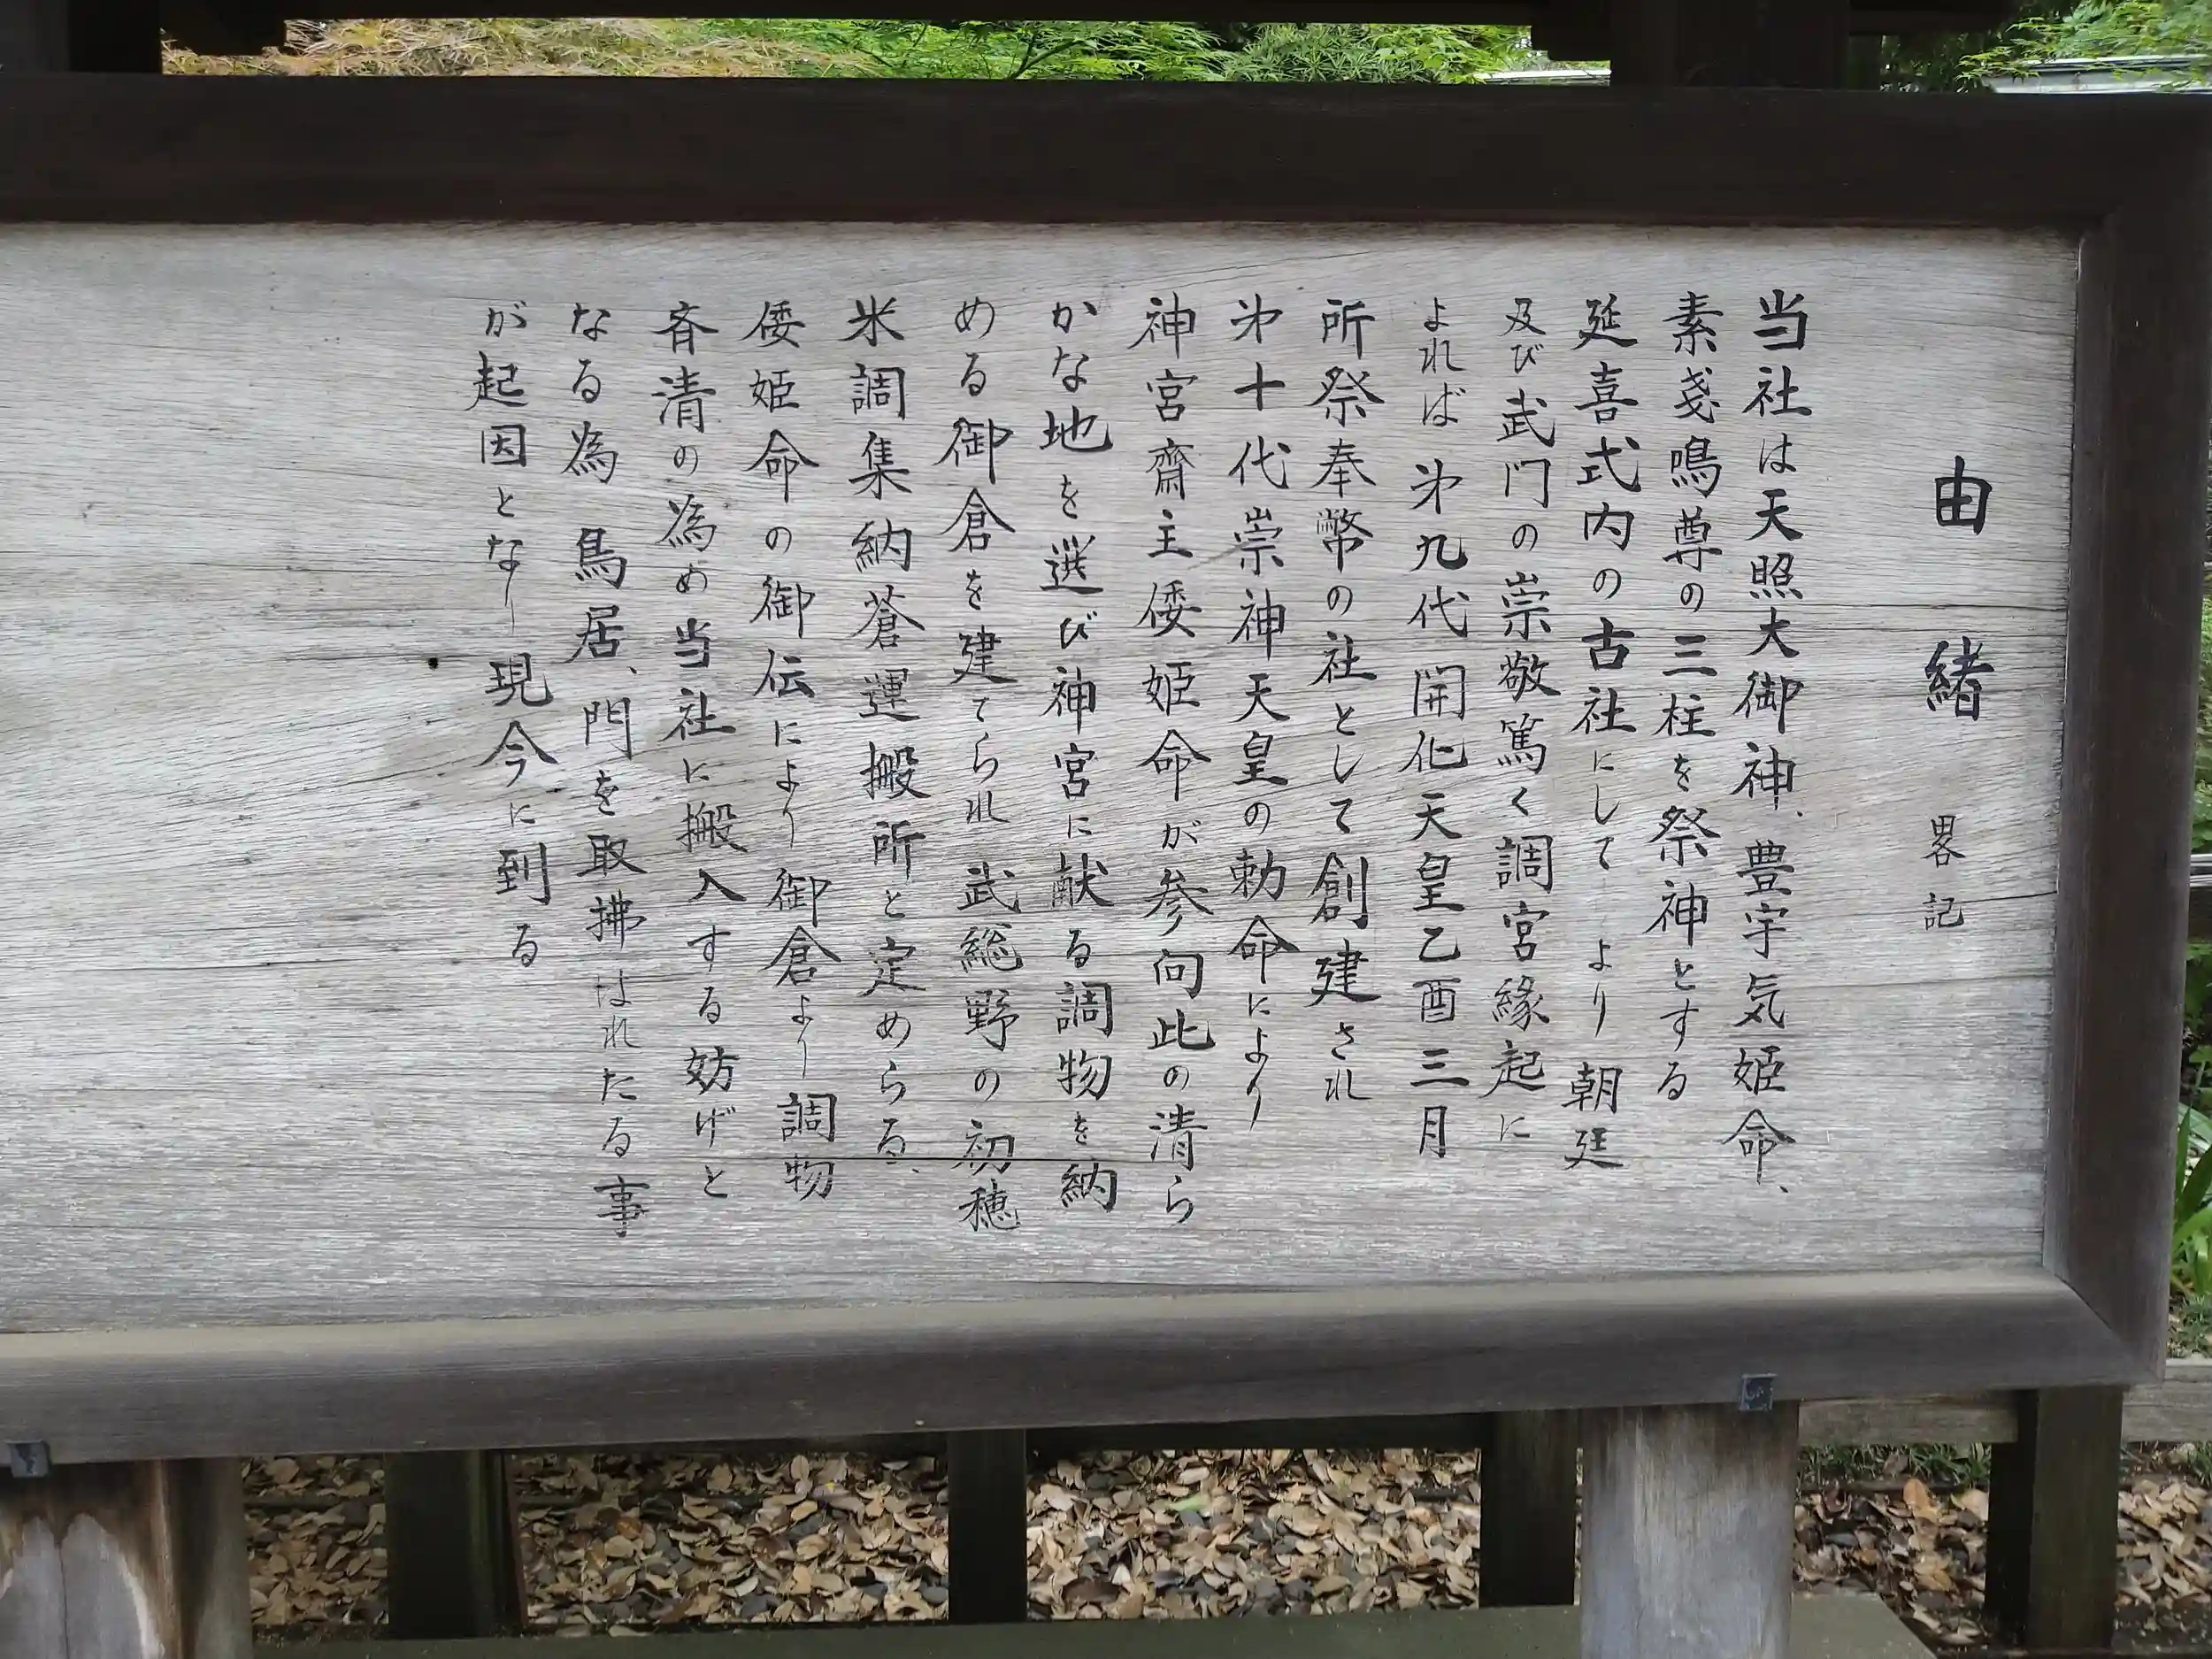 由緒 畧記
当社は天照大御神、豊宇気姫命、
素戔鳴尊の三柱を祭神とする
延喜式内の古社にして より朝廷
及び武門の崇敬篤く調宮縁起に
よれば 㐧九代開化天皇乙酉三月
所祭奉幣の社として創建され
㐧十代崇神天皇の勅命により
神宮齋主倭姫命が参向此の清ら
かな地を選び神宮に献る調物を納
める御倉を建てられ 武総野の初穂
米調集納蒼運搬所と定めらる、
倭姫命の御伝により御倉より調物
斉清の為め当社に搬入する妨げと
なる為 鳥居、門を取拂はれたる事
が起因となり 現今に到る